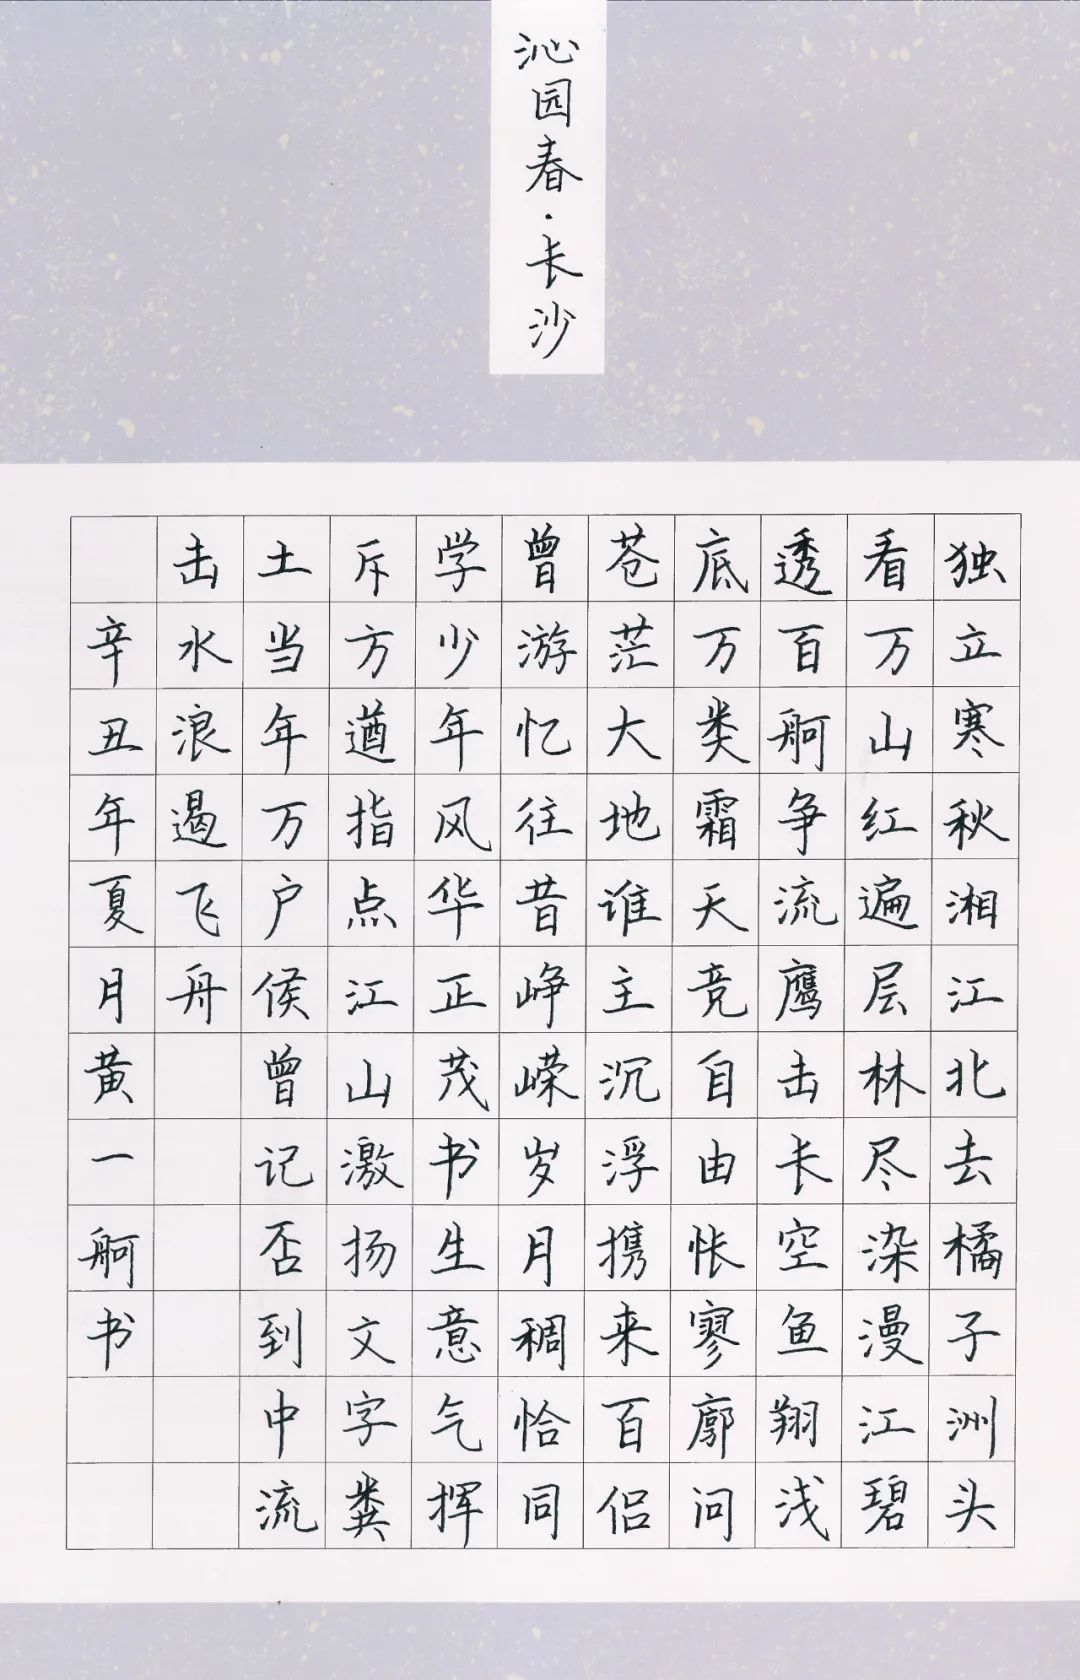 沁园春·长沙
独立寒秋湘江北去橘子洲头
看万山红遍层林尽染漫江碧
透百舸争流鹰击长空鱼翔浅
底万类霜天竞自由怅寥廓问
苍茫大地谁主沉浮携来百侣
曾游忆往昔峥嵘岁月稠恰同
学少年风华正茂书生意气挥
斥方遒指点江山激扬文字粪
土当年万户侯曾记否到中流
击水浪遏飞舟
辛丑年夏月黄一舸书